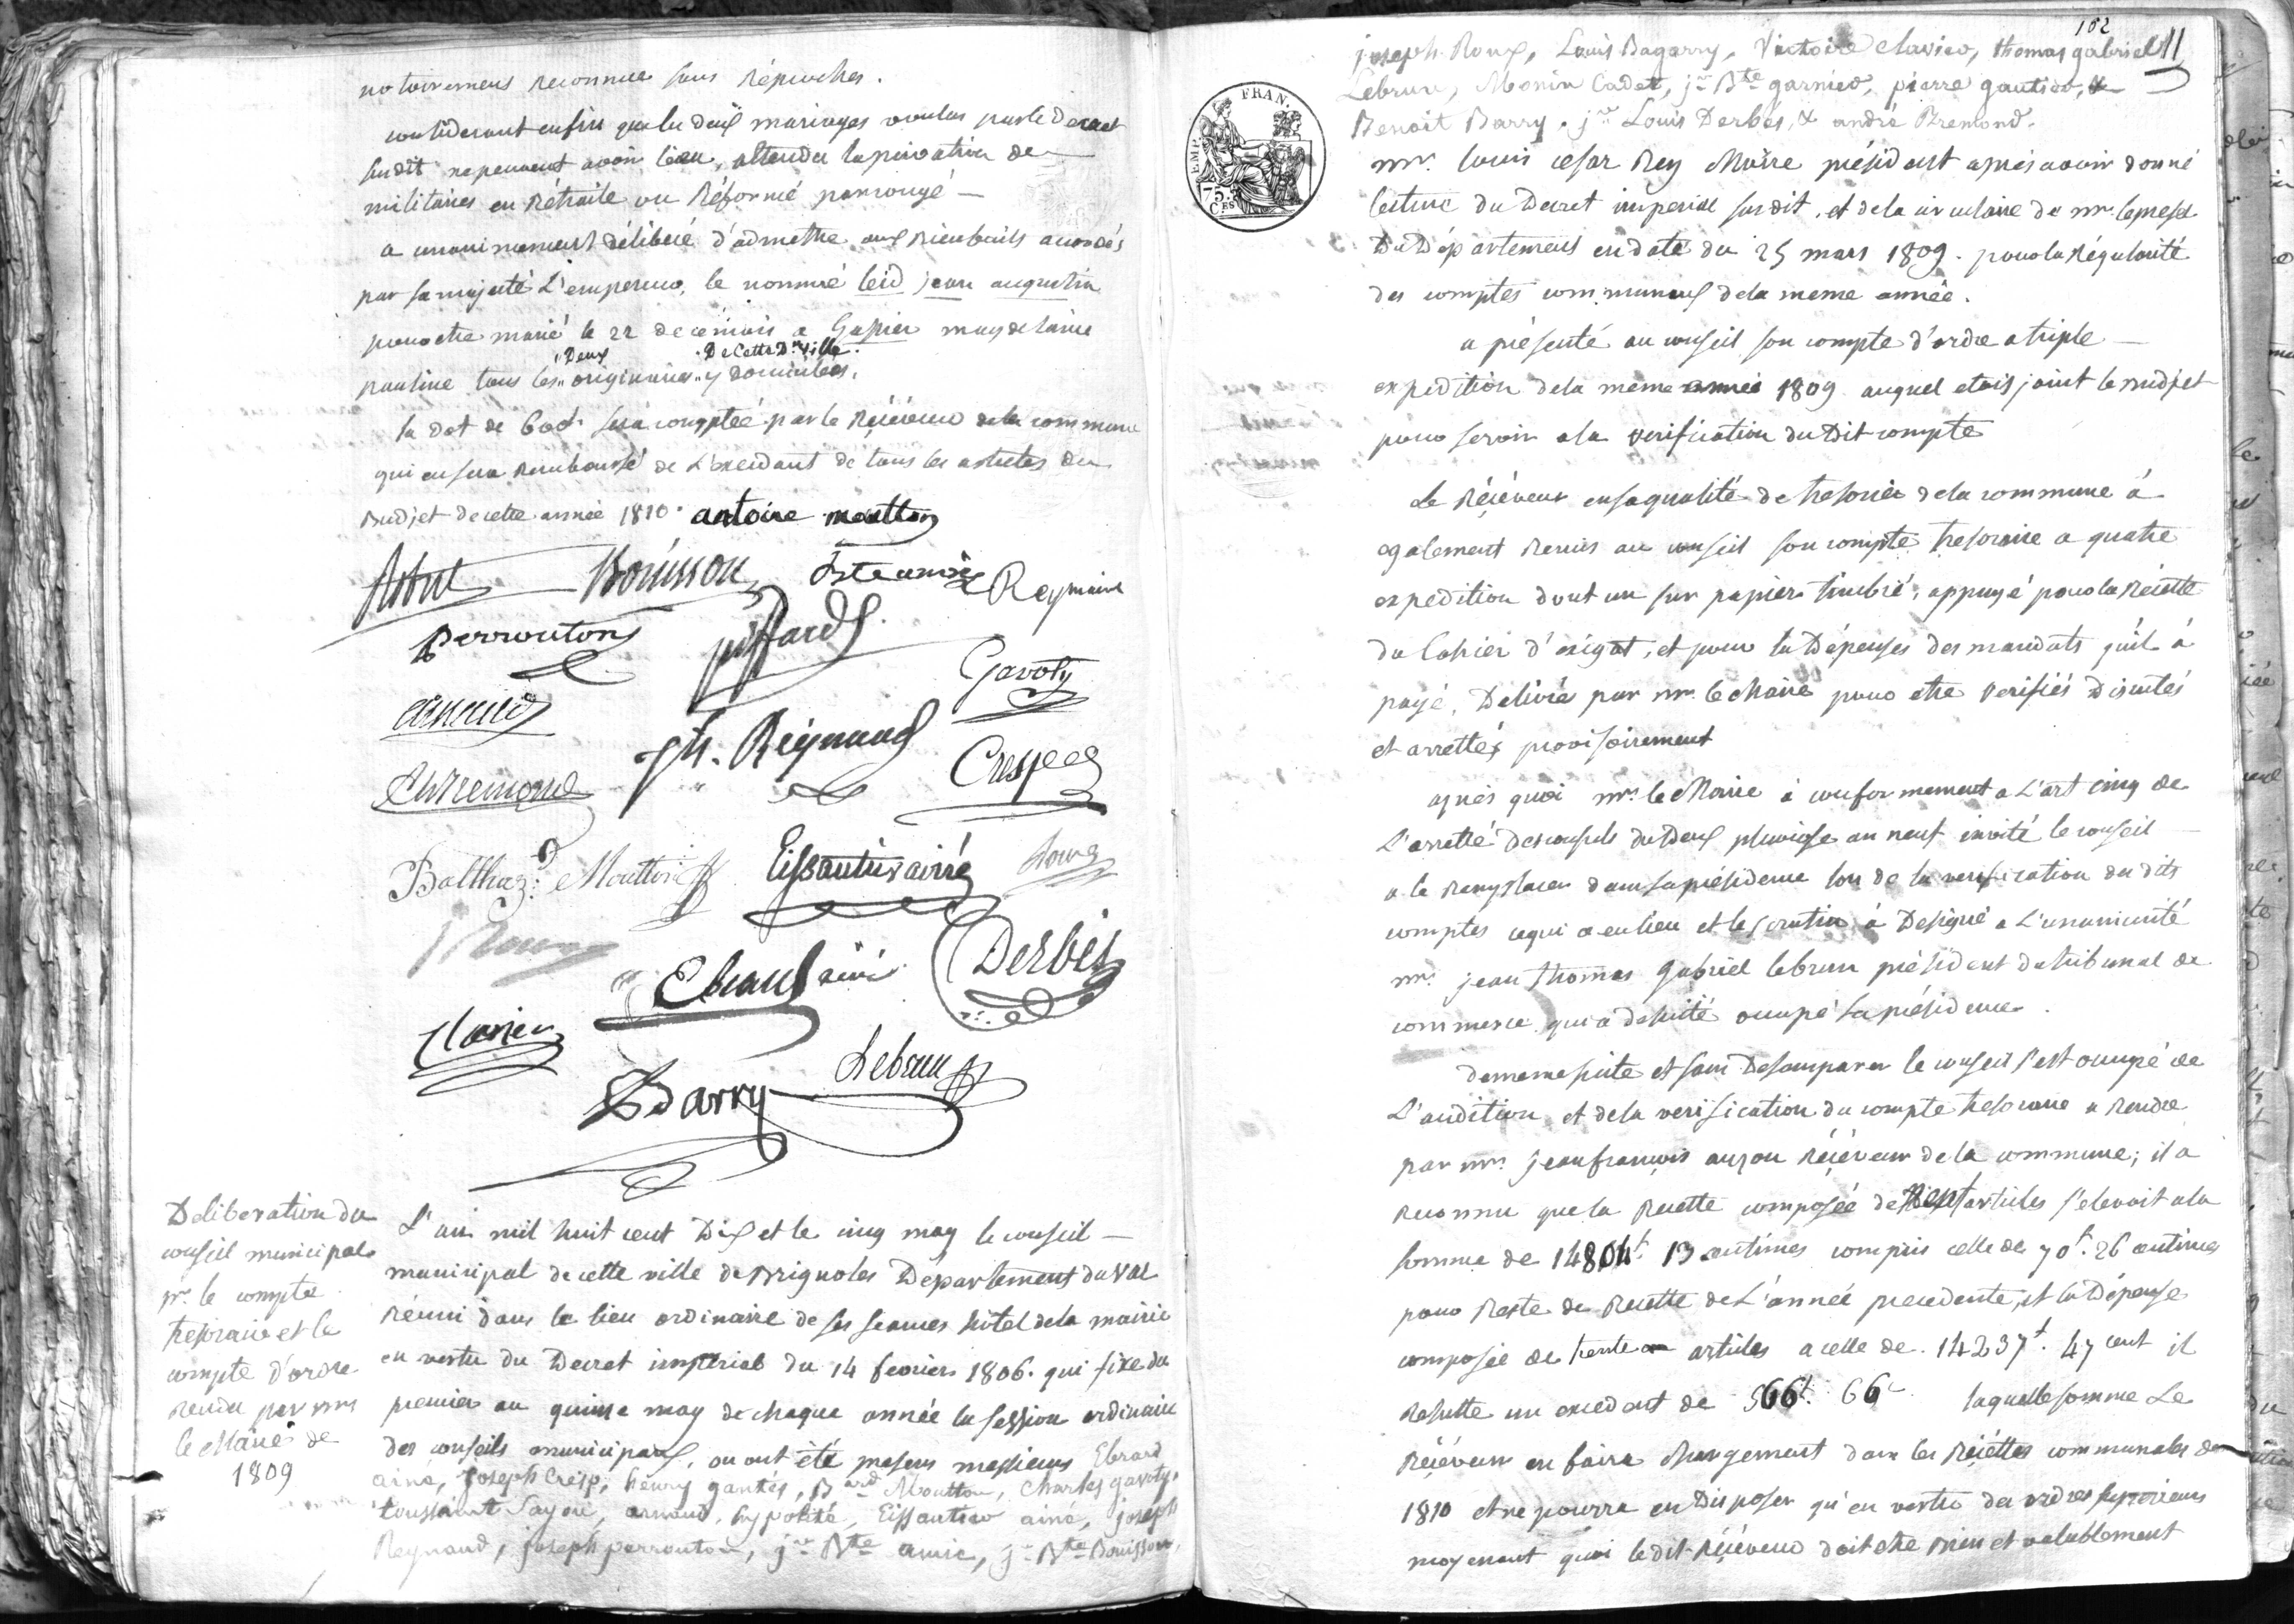 notoirement reconnue sans Réproches.
considerant enfin que les deux mariages voulus par le Decret
susdit ne peuvent avoir lieu, attendu la privation de
militaires en Rétraite ou Réformé par congé
a unanimement délibéré d'admettre aux bienfaits accordés
par sa majesté L'empereur, le nommé jean augustin
pour etre marié le 22 de ce mois a magdelaine
pauline tous les "Deux originaires "De Cette D. Ville. y domiciliés.
la Dot de 600f sera comptée par le Réçéveur de la commune
qui en sera Remboursé de L'excedant de tous les articles du
Budjet de cette année 1810. antoine moutton
Bouisson Reymaint
perrouton piffard
Gavoty
arnaud
jh. Reynaud
Cresp
Balthaz. Moutton Eissautier ainé
Ebrard ainé Derbès
Clavier
Barry Lebrun
Deliberation du
conseil municipal
pr. le compte
tresoraire et le
compte d'ordre
rendu par mr
le Maire de
1809
L'an mil huit cent Dix et le cinq may le conseil
municipal de cette ville de Brignoles Département du Var
réuni dans le lieu ordinaire de ses seances hôtel de la mairie
en vertu du Decret impérial du 14 fevrier 1806. qui fixe du
premier au quinze may de chaque année la session ordinaire
des conseils municipaux, ou ont été presens messieurs Ebrard
ainé, Joseph Cresp, henry gantés, Moutton, Charles gavoty,
toussaint arnaud, hypolité, Eissautier ainé, joseph
Reynaud, joseph perrouton, jn Bte amic, jn Bte Bouisson,
102
11
joseph Roux, Louis Dagarry, Victoire Clavier, thomas gabriel
Lebrun, Monin Cadet, jn Bte garnier, pierre gautier, &
Benoit Barry. jn Louis Derbès, & andré Bremond.
EMP. FRAN.
75.
C.ES
mr. louis cesar Rey Maire président après avoir donné
lecture du Decret imperial susdit, et de la circulaire de mr. le prefet
Du Département en date du 25 mars 1809. pour la régularité
des comptes communaux de la meme année.
a présenté au conseil son compte d'ordre a triple
expedition de la meme année 1809 auquel etois joint le Budjet
pour servir a la verification du Dit compte
Le Réçéveur en sa qualité de tresorier de la commune à
egalement Remis au conseil son compte tresoraire a quatre
expedition dont un sur papier timbré, appuyé pour la Réçette
du Cahier d'exigat, et pour la Dépenses des mandats qu'il à
payé, Delivrés par mr. le Maire pour etre verifiés Discutés
et arrettés provisoirement
après quoi mr. le Maire à conformement a L'art cinq de
L'arretté des consuls du Deux pluviose an neuf invité le conseil
a le Remplacer dans sa présidence lors de la verification des dits
comptes ce qui a eu lieu et le scrutin à Designé a L'unanimité
mr. jean thomas gabriel lebrun président du tribunal de
commerce qui a desuité occupé la présidence.
de meme suite et sans Desemparer le conseil s'est occupé de
L'audition et de la verification du compte tresoraire a Rendre
par mr. jean françois auzou Réçéveur de la commune; il a
reconnu que la Recette composée de sept articles s'elevoit a la
somme de 14804f. 13 centimes compris celle de 70f. 26 centimes
pour Reste de Recette de L'année precedente, et la Dépense
composée de trente articles a celle de 14237f. 47 cent il
resulte un excedant de 566f. 66c laquelle somme Le
Réçéveur en faire chargement dans les Réçéttes communales de
1810 et ne pourra en Disposer qu'en vertu des ordres superieurs
moyenant quoi le dit Réçéveur doit etre bien et valablement